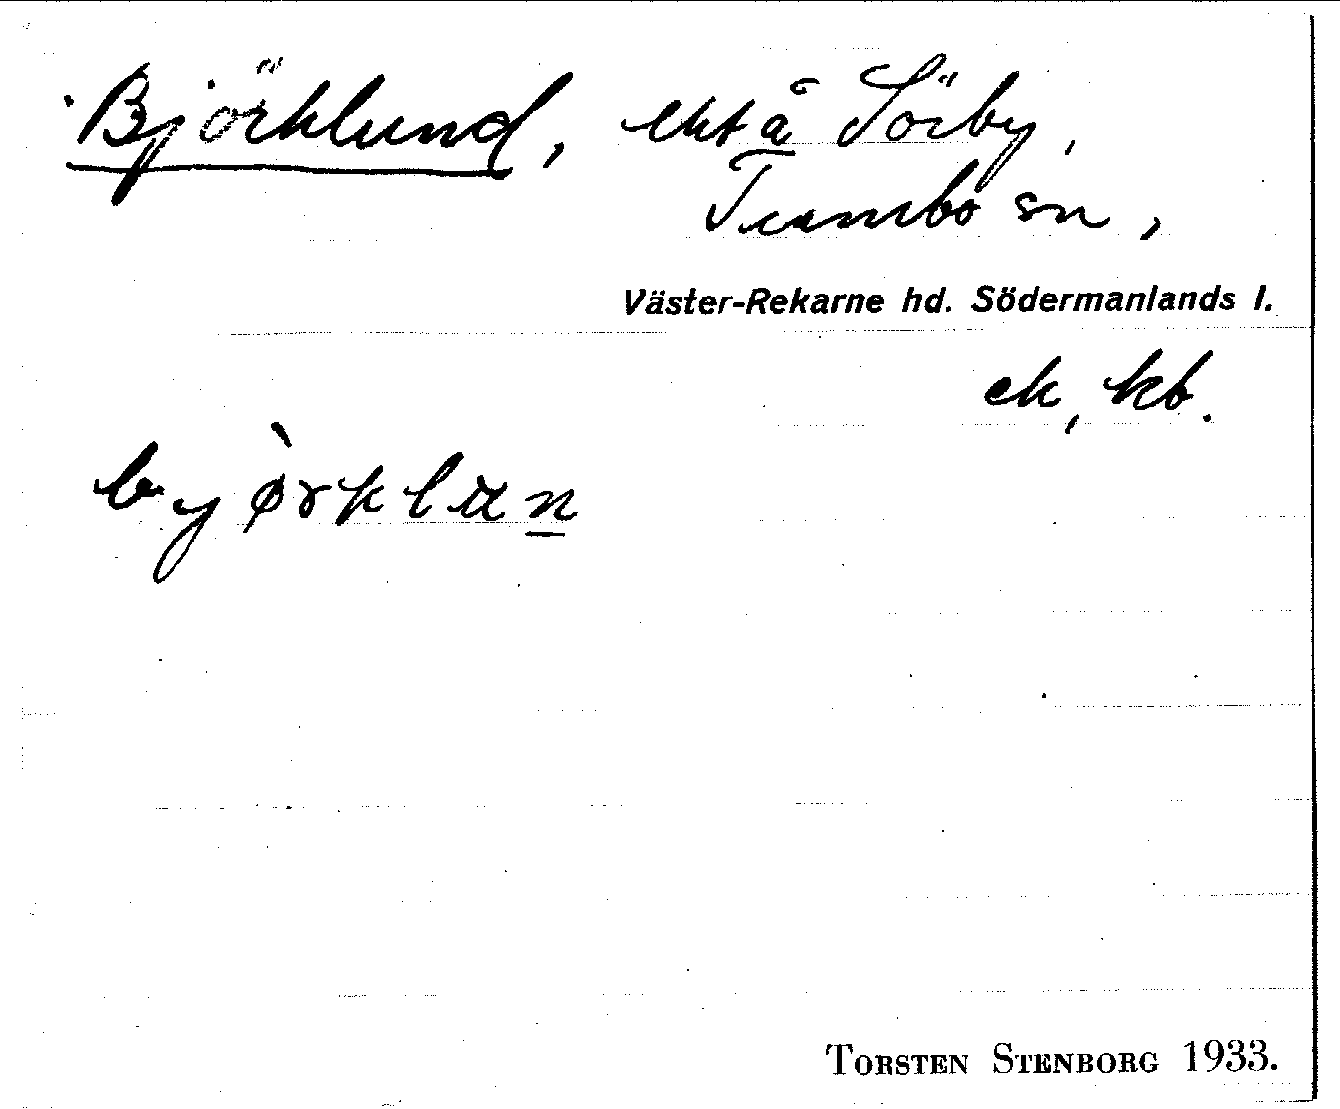 Björklund, ext å Sörby,
Tumbo sn,
Väster-Rekarne hd. Södermanlands l.
ek, kb.
bjø̀rklun
TORSTEN STENBORG 1933.